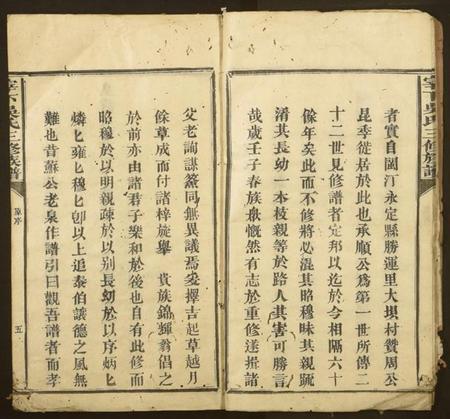 宰下吳氏三修族譜
者實自閩汀永定縣勝運里大坝村贊周公
昆季徙居於此也承順公為第一世所傳二
十二世見修譜者定邦以迄於今相隔六十
餘年矣此而不修將必混其昭穆昧其親踈
淆其長幼一本枝親等於路人其害可勝言
哉歲壬子春族衆慨然有志於重修遂揖諸
父老詢謀僉同無異議焉爰擇吉起草越月
餘草成而付諸梓旋舉 貴族錦輝翁倡之
於前亦由諸君子樂和於後也自有此修而
昭穆於以明親疎於以別長幼於以序炳匕
燐匕雍匕穆匕卽以上追泰伯讓德之風無
難也昔蘇公老泉作譜引曰觀吾譜者而孝
宰下吳氏三修族譜
五